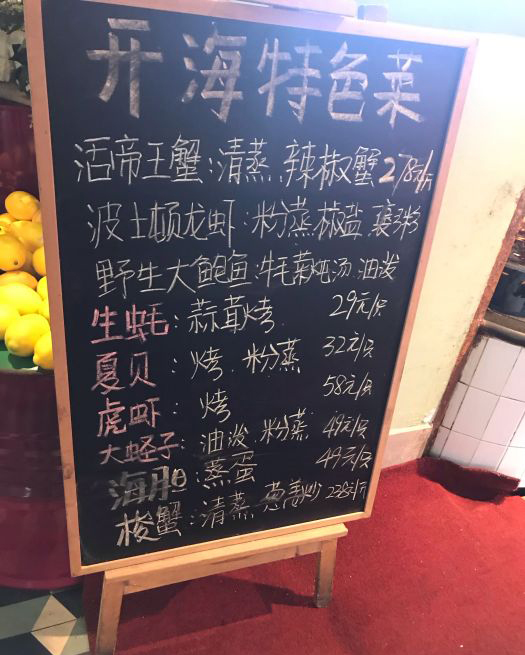 开海特色菜
活帝王蟹:清蒸.辣椒蟹278元/斤
波士顿龙虾:粉蒸.椒盐.裹粉
野生大鲍鱼:牛毛菜炖汤.油泼
生蚝:蒜茸烤.29元/只
夏贝:烤.粉蒸 32元/只
虎虾:烤 58元/只
大蛏子:油泼.粉蒸 49元/只
海胆:蒸蛋 49元/只
梭蟹:清蒸.葱姜炒 228元/斤